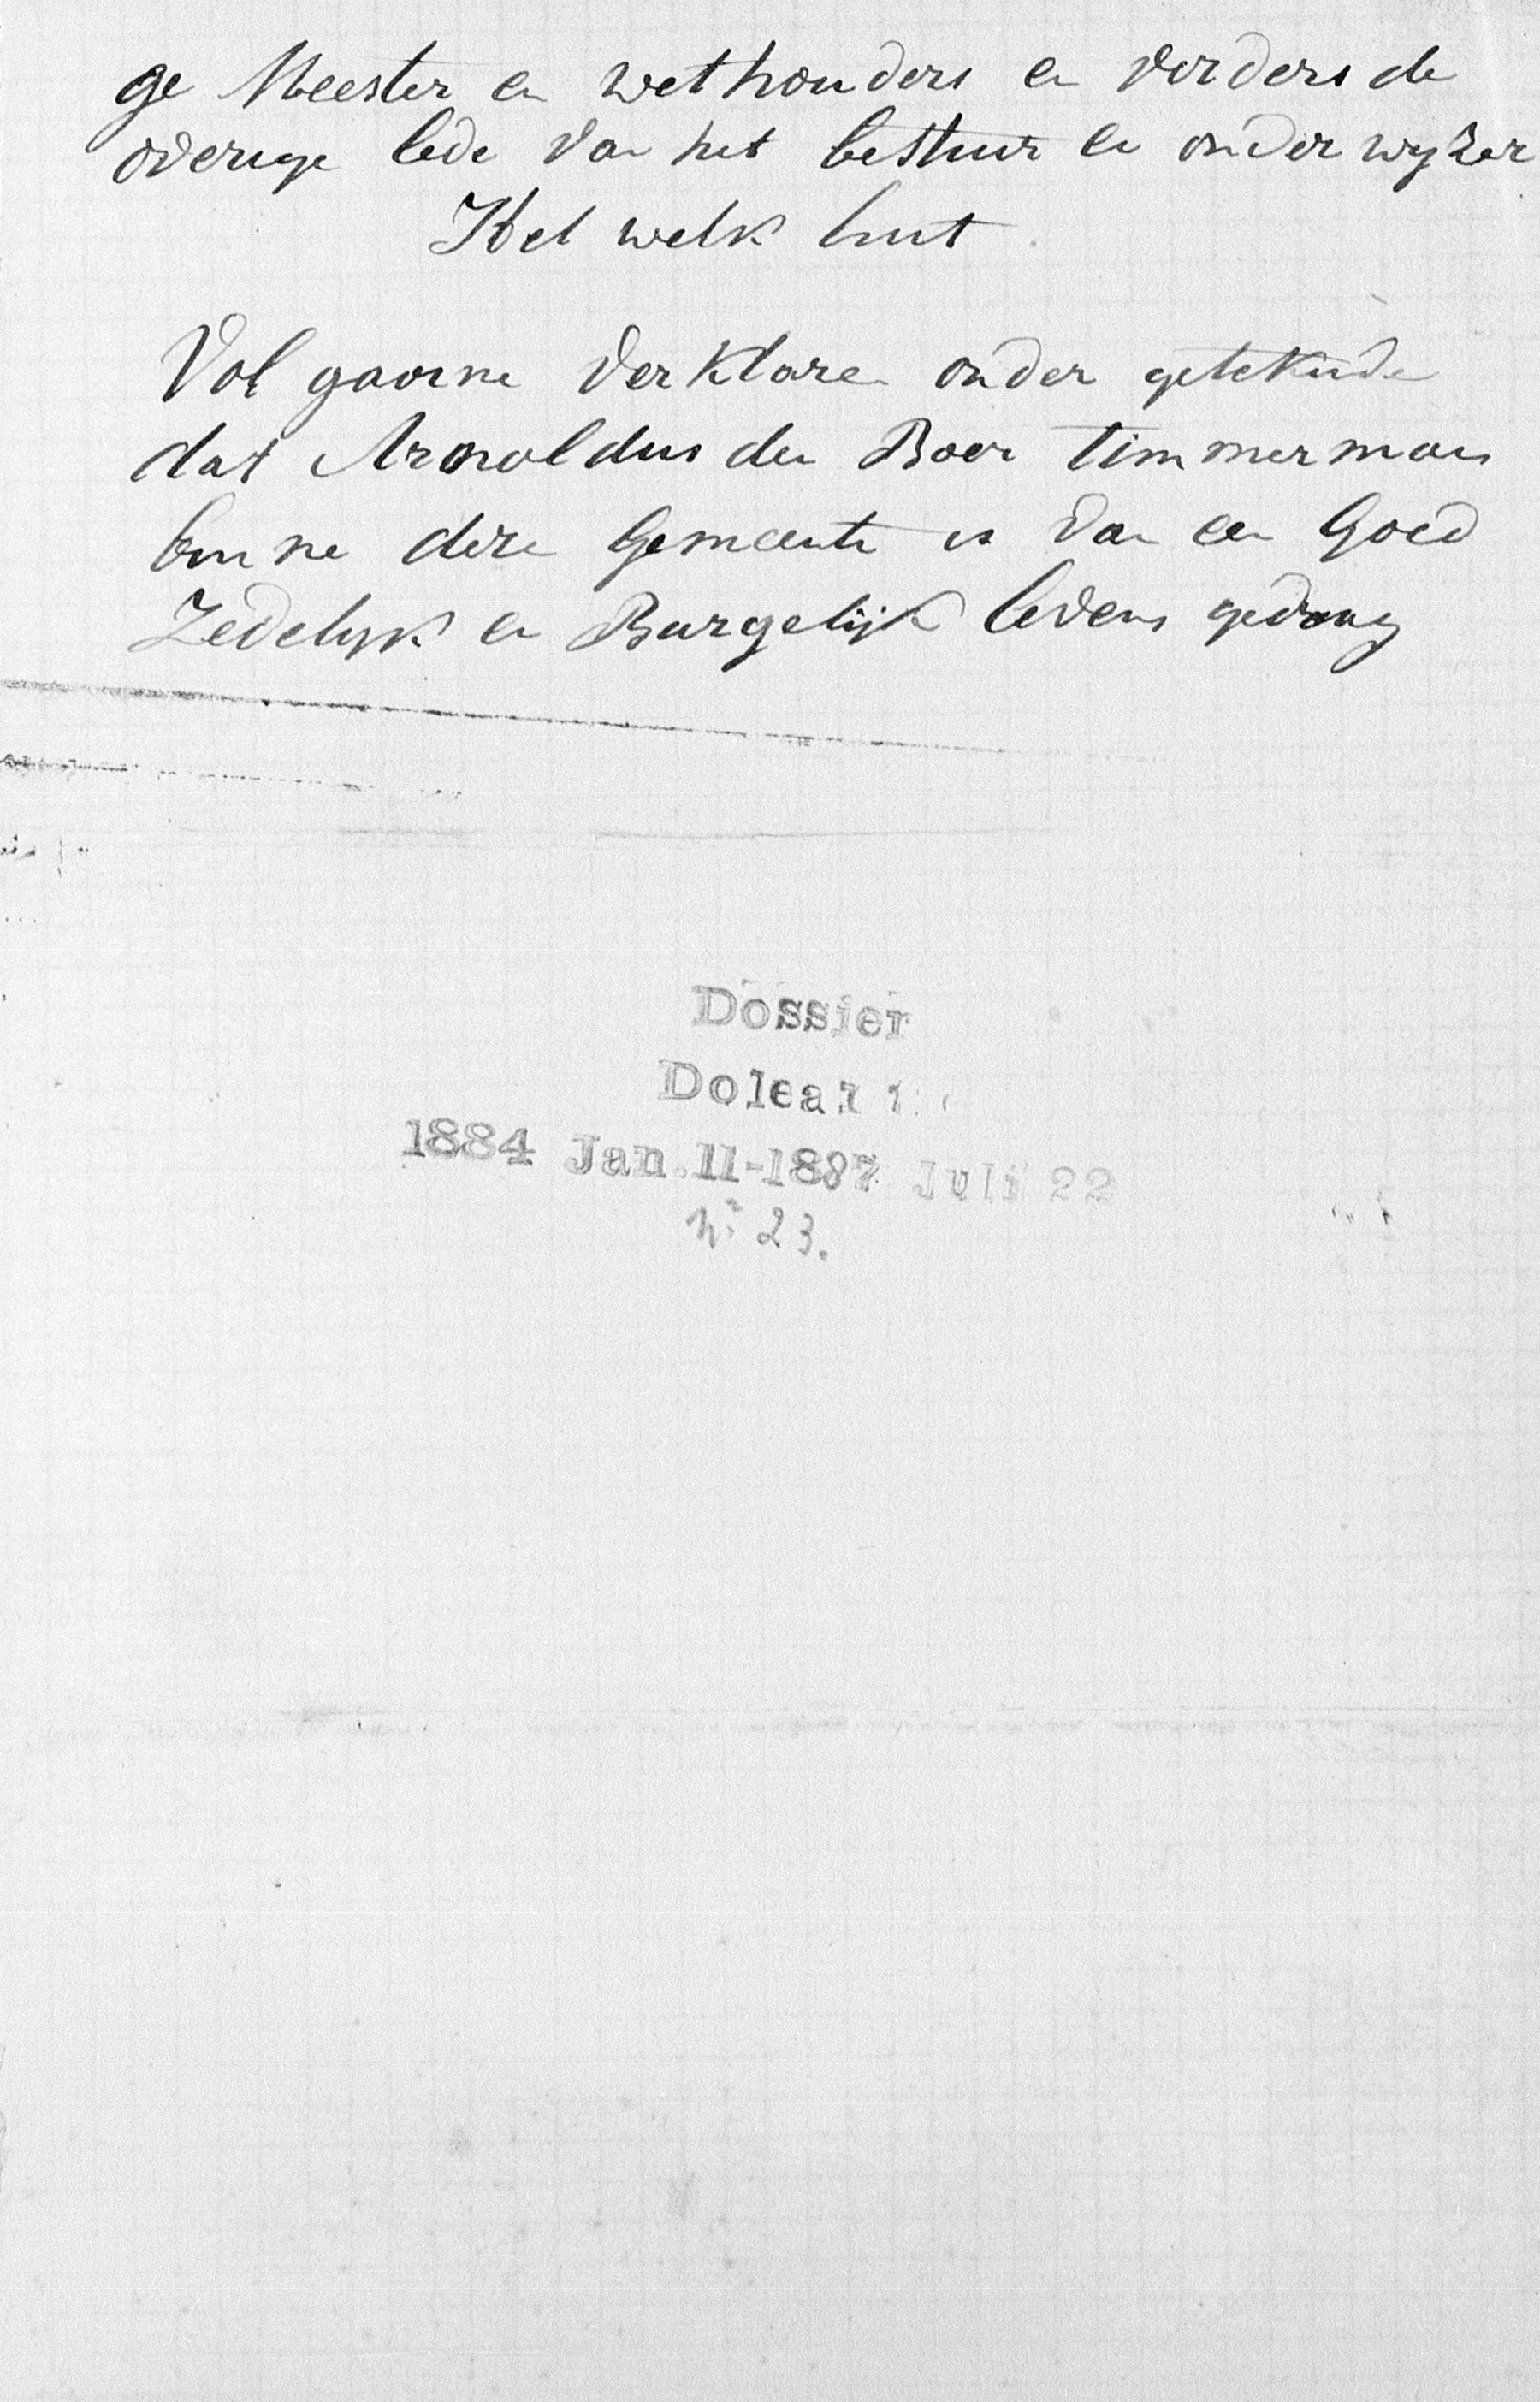 ge Meester en wethouders en verders de
overige lede van het bestuur en onder wyzer
Het welk luit
Vol gaarne verklare onder getekende
dat Arnoldus den Boer timmerman
binne deze Gemeente is van een Goed
Zedelyk en Burgelijk levens gedrag
Dossier
Doleant
1884 Jan. 11-1887 Juli 22
No 23.